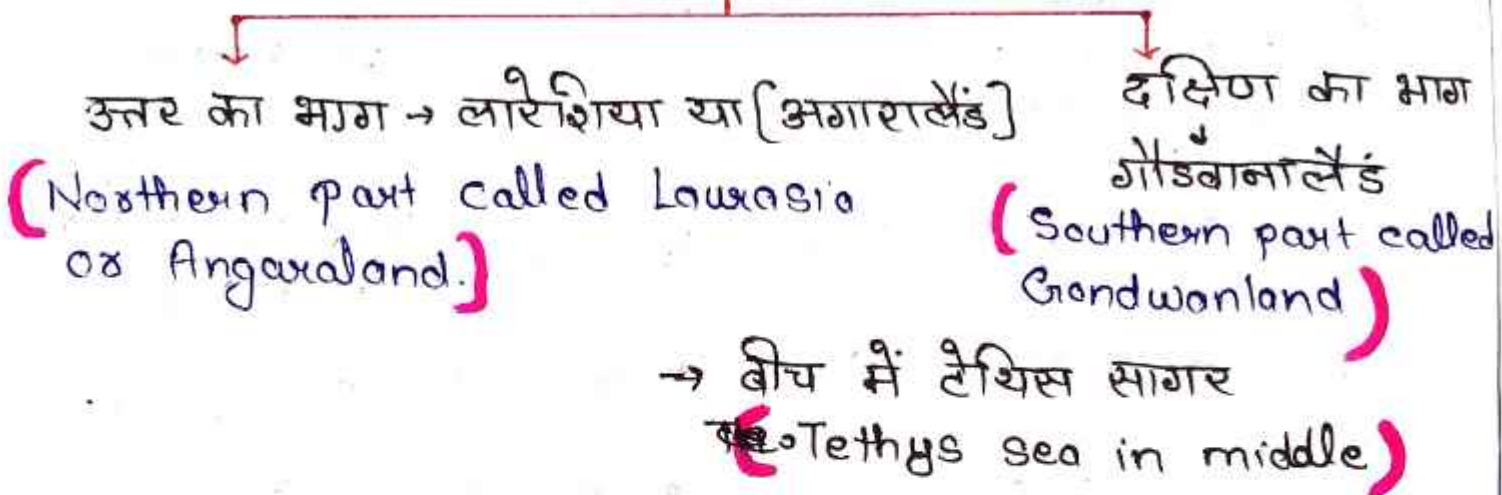 उत्तर का भाग → लारेशिया या [अगारालैंड]
(Northern part called Laurasia
or Angaraland.)
दक्षिण का भाग
गौंडवानालैंड
(Southern part called
Gondwanland)
→ बीच में टेथिस सागर
(Tethys sea in middle)